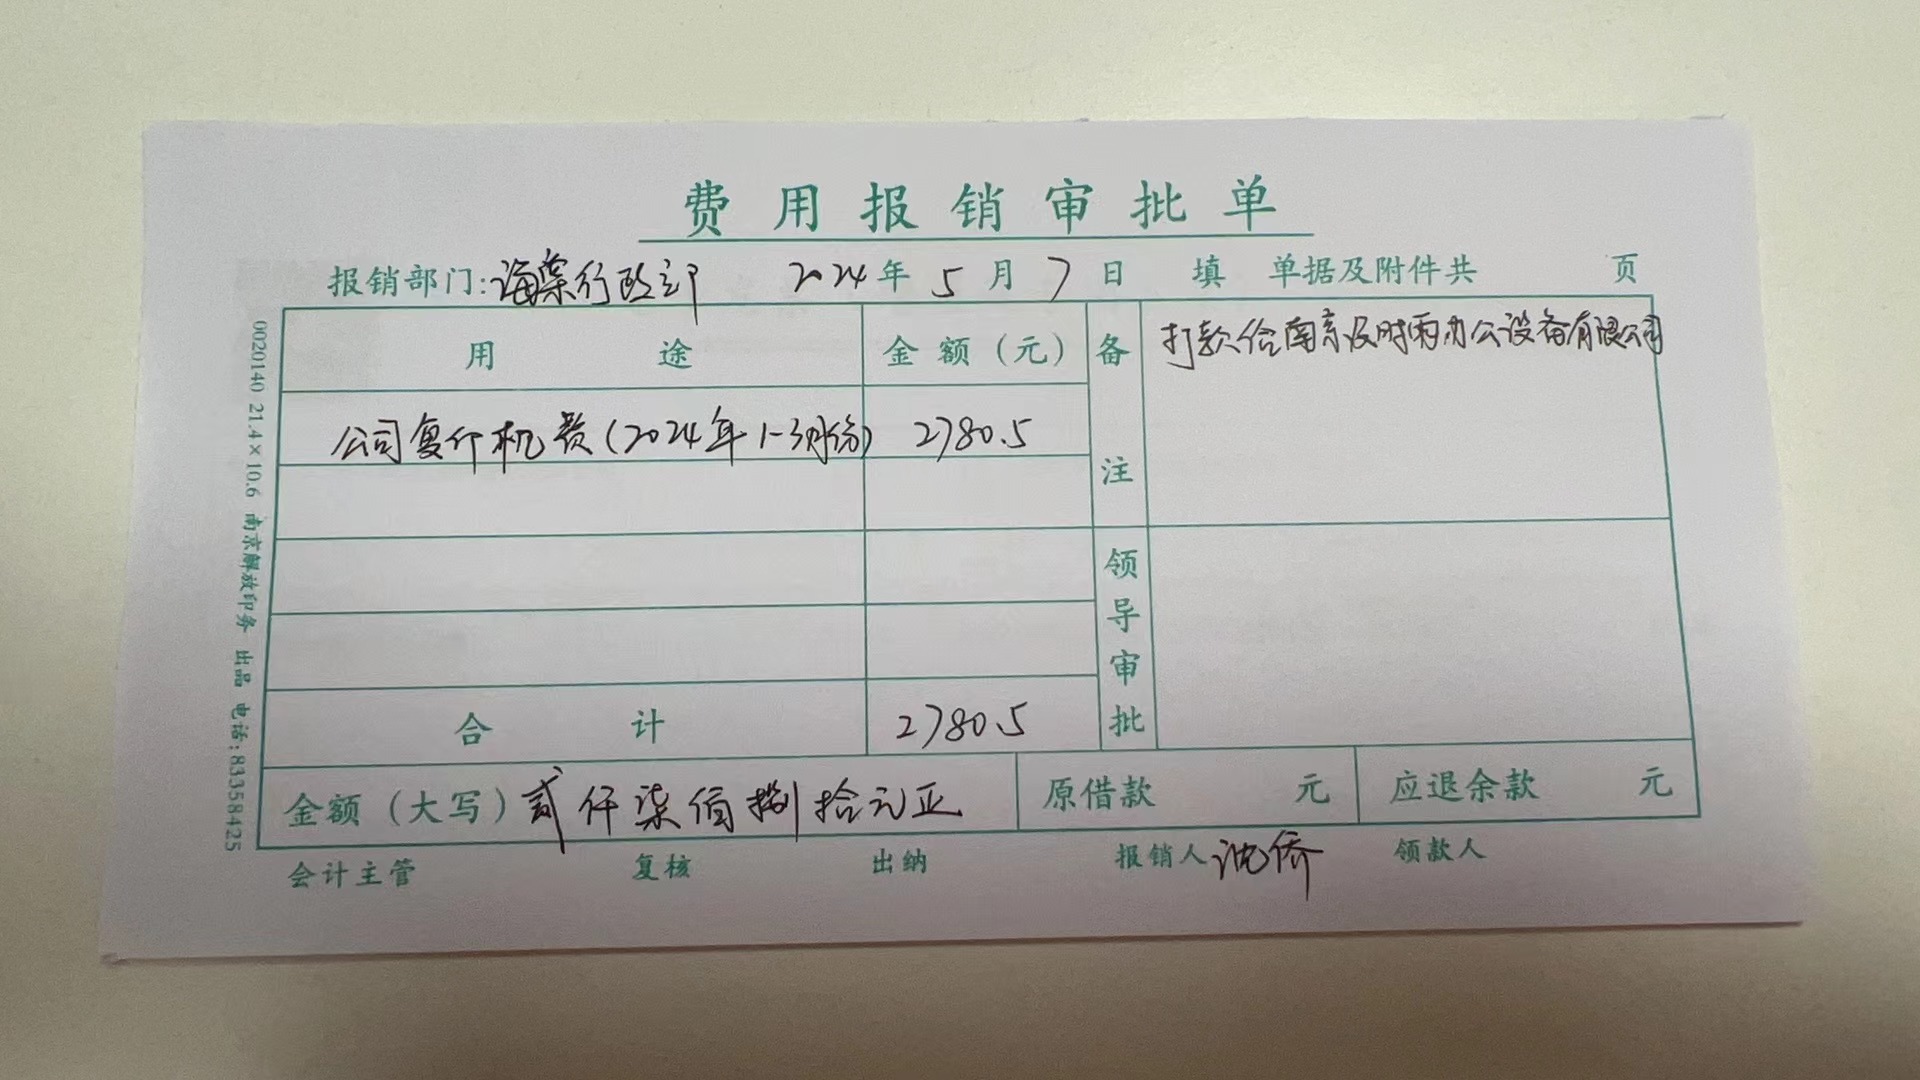 费用报销审批单
报销部门:海棠行政部 2024年5月7日 填 单据及附件共 页
用途 金额(元) 备注 打款给南京及时雨办公设备有限公司
公司复印机费(2024年1-3月份) 2780.5
领导审批
合计 2780.5
金额(大写)贰仟柒佰捌拾元正 原借款 元 应退余款 元
会计主管 复核 出纳 报销人 沈侨 领款人
0020140 21.4×10.6 南京解放印务 出品 电话:83358425